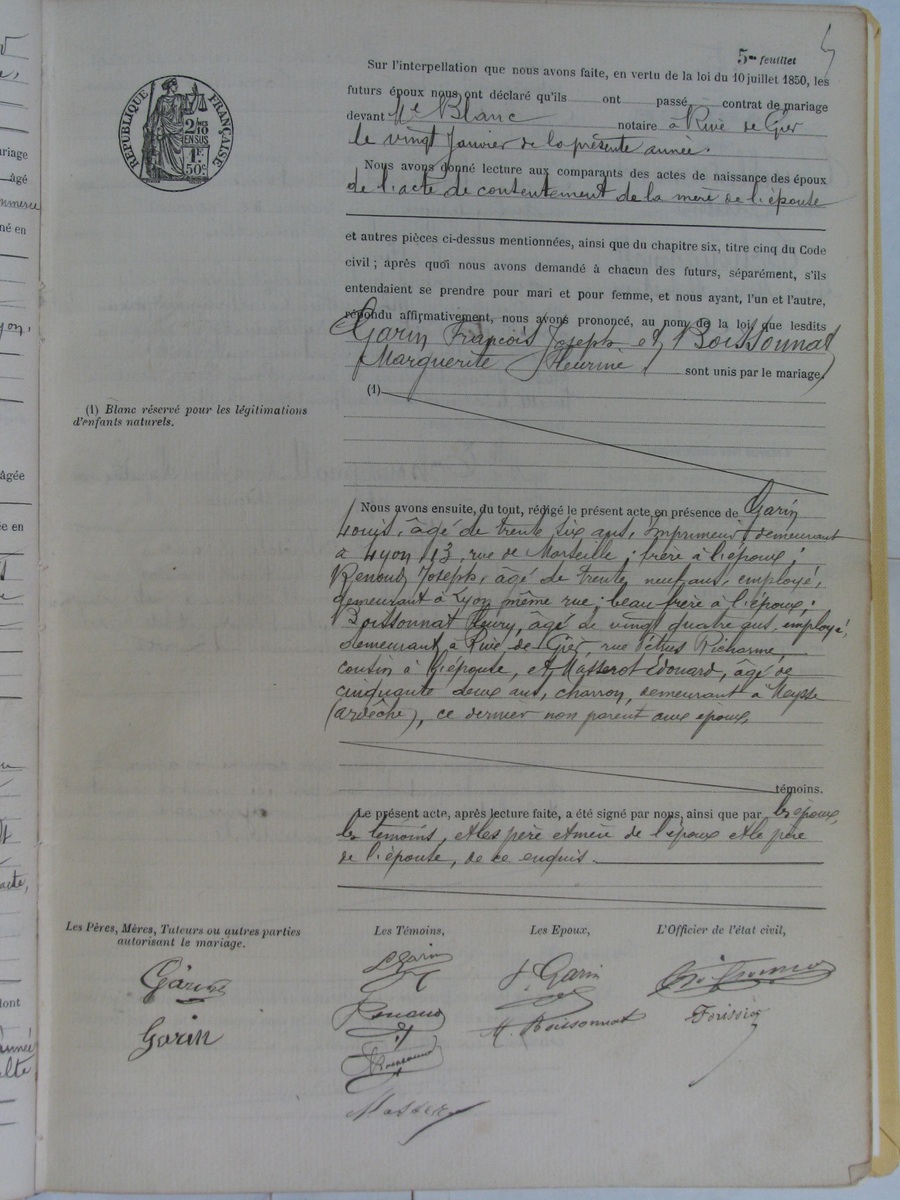 5me feuillet
5
RÉPUBLIQUE FRANÇAISE
2/10
EN SUS
1F
50c
Sur l'interpellation que nous avons faite, en vertu de la loi du 10 juillet 1850, les
futurs époux nous ont déclaré qu'ils ont passé contrat de mariage
devant Me Blanc notaire à Rive de Gier
le vingt Janvier de la présente année.
Nous avons donné lecture aux comparants des actes de naissance des époux
de l'acte de consentement de la mère de l'épouse
et autres pièces ci-dessus mentionnées, ainsi que du chapitre six, titre cinq du Code
civil ; après quoi nous avons demandé à chacun des futurs, séparément, s'ils
entendaient se prendre pour mari et pour femme, et nous ayant, l'un et l'autre,
répondu affirmativement, nous avons prononcé, au nom de la loi, que lesdits
Garin François Joseph et Boissonnat
Marguerite Fleurine sont unis par le mariage.
(1)
(1) Blanc réservé pour les légitimations
d'enfants naturels.
Nous avons ensuite, du tout, rédigé le présent acte en présence de Garin
Louis, âgé de trente six ans, Imprimeur, demeurant
à Lyon 113, rue de Marseille ; frère à l'époux ;
Renoud Joseph, âgé de trente neuf ans, employé,
demeurant à Lyon même rue ; beau frère à l'époux ;
Boissonnat Fleury, âgé de vingt quatre ans, employé,
demeurant à Rive de Gier, rue Pétrus Richarme,
cousin à l'épouse, et Masserot Edouard, âgé de
cinquante deux ans, charron, demeurant à Meysse
(ardèche), ce dernier non parent aux époux
témoins.
Le présent acte, après lecture faite, a été signé par nous, ainsi que par les époux,
les témoins, et les père et mère de l'époux et le père
de l'épouse, de ce enquis.
Les Pères, Mères, Tuteurs ou autres parties
autorisant le mariage.
Les Témoins,
Les Epoux,
L'Officier de l'état civil,
Garin
Garin
L Garin
Renoud
Boissonnat
Masserot
F. Garin
M. Boissonnat